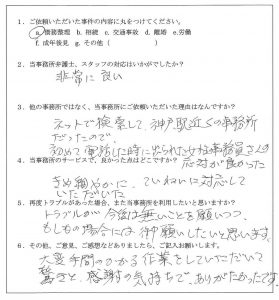 1．ご依頼いただいた事件の内容に丸をつけてください。
a.債務整理 b. 相続 c. 交通事故 d. 離婚 e.労働
f. 成年後見 g. その他（　　　　）
2．当事務所弁護士、スタッフの対応はいかがでしたか？
非常に良い
3．他の事務所ではなく、当事務所にご依頼いただいた理由はなんですか？
ネットで検索して、神戸駅近くの事務所
だったので
初めて電話した時に出られた女性事務員さんの
応対が良かった
4．当事務所のサービスで、良かった点はどこですか？
きめ細やかに、ていねいに対応して
いただいた
5．再度トラブルがあった場合、また当事務所を利用したいと思いますか？
トラブルが今後は無いことを願いつつ、
もしもの場合には御願いしたいと思います。
6．その他、ご意見、ご感想などありましたら、ご記入お願いします。
大変手間のかかる作業をしていただいて
驚きと、感謝の気持ちで、ありがたかったです。